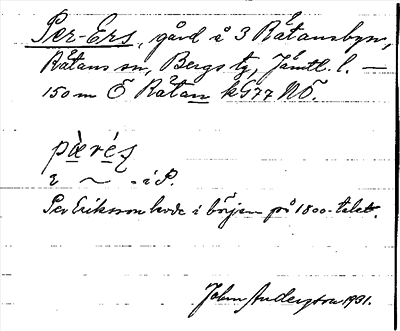 Per-Ers, gård å 3 Råtansbyn,
Råtans sn, Bergs tg, Jämtl. l. —
150 m Ö Råtan k G77 NÖ.
pæ̀rés
2 ~ . i P.
Per Eriksson levde i början på 1800-talet.
John Anderzon 1931.